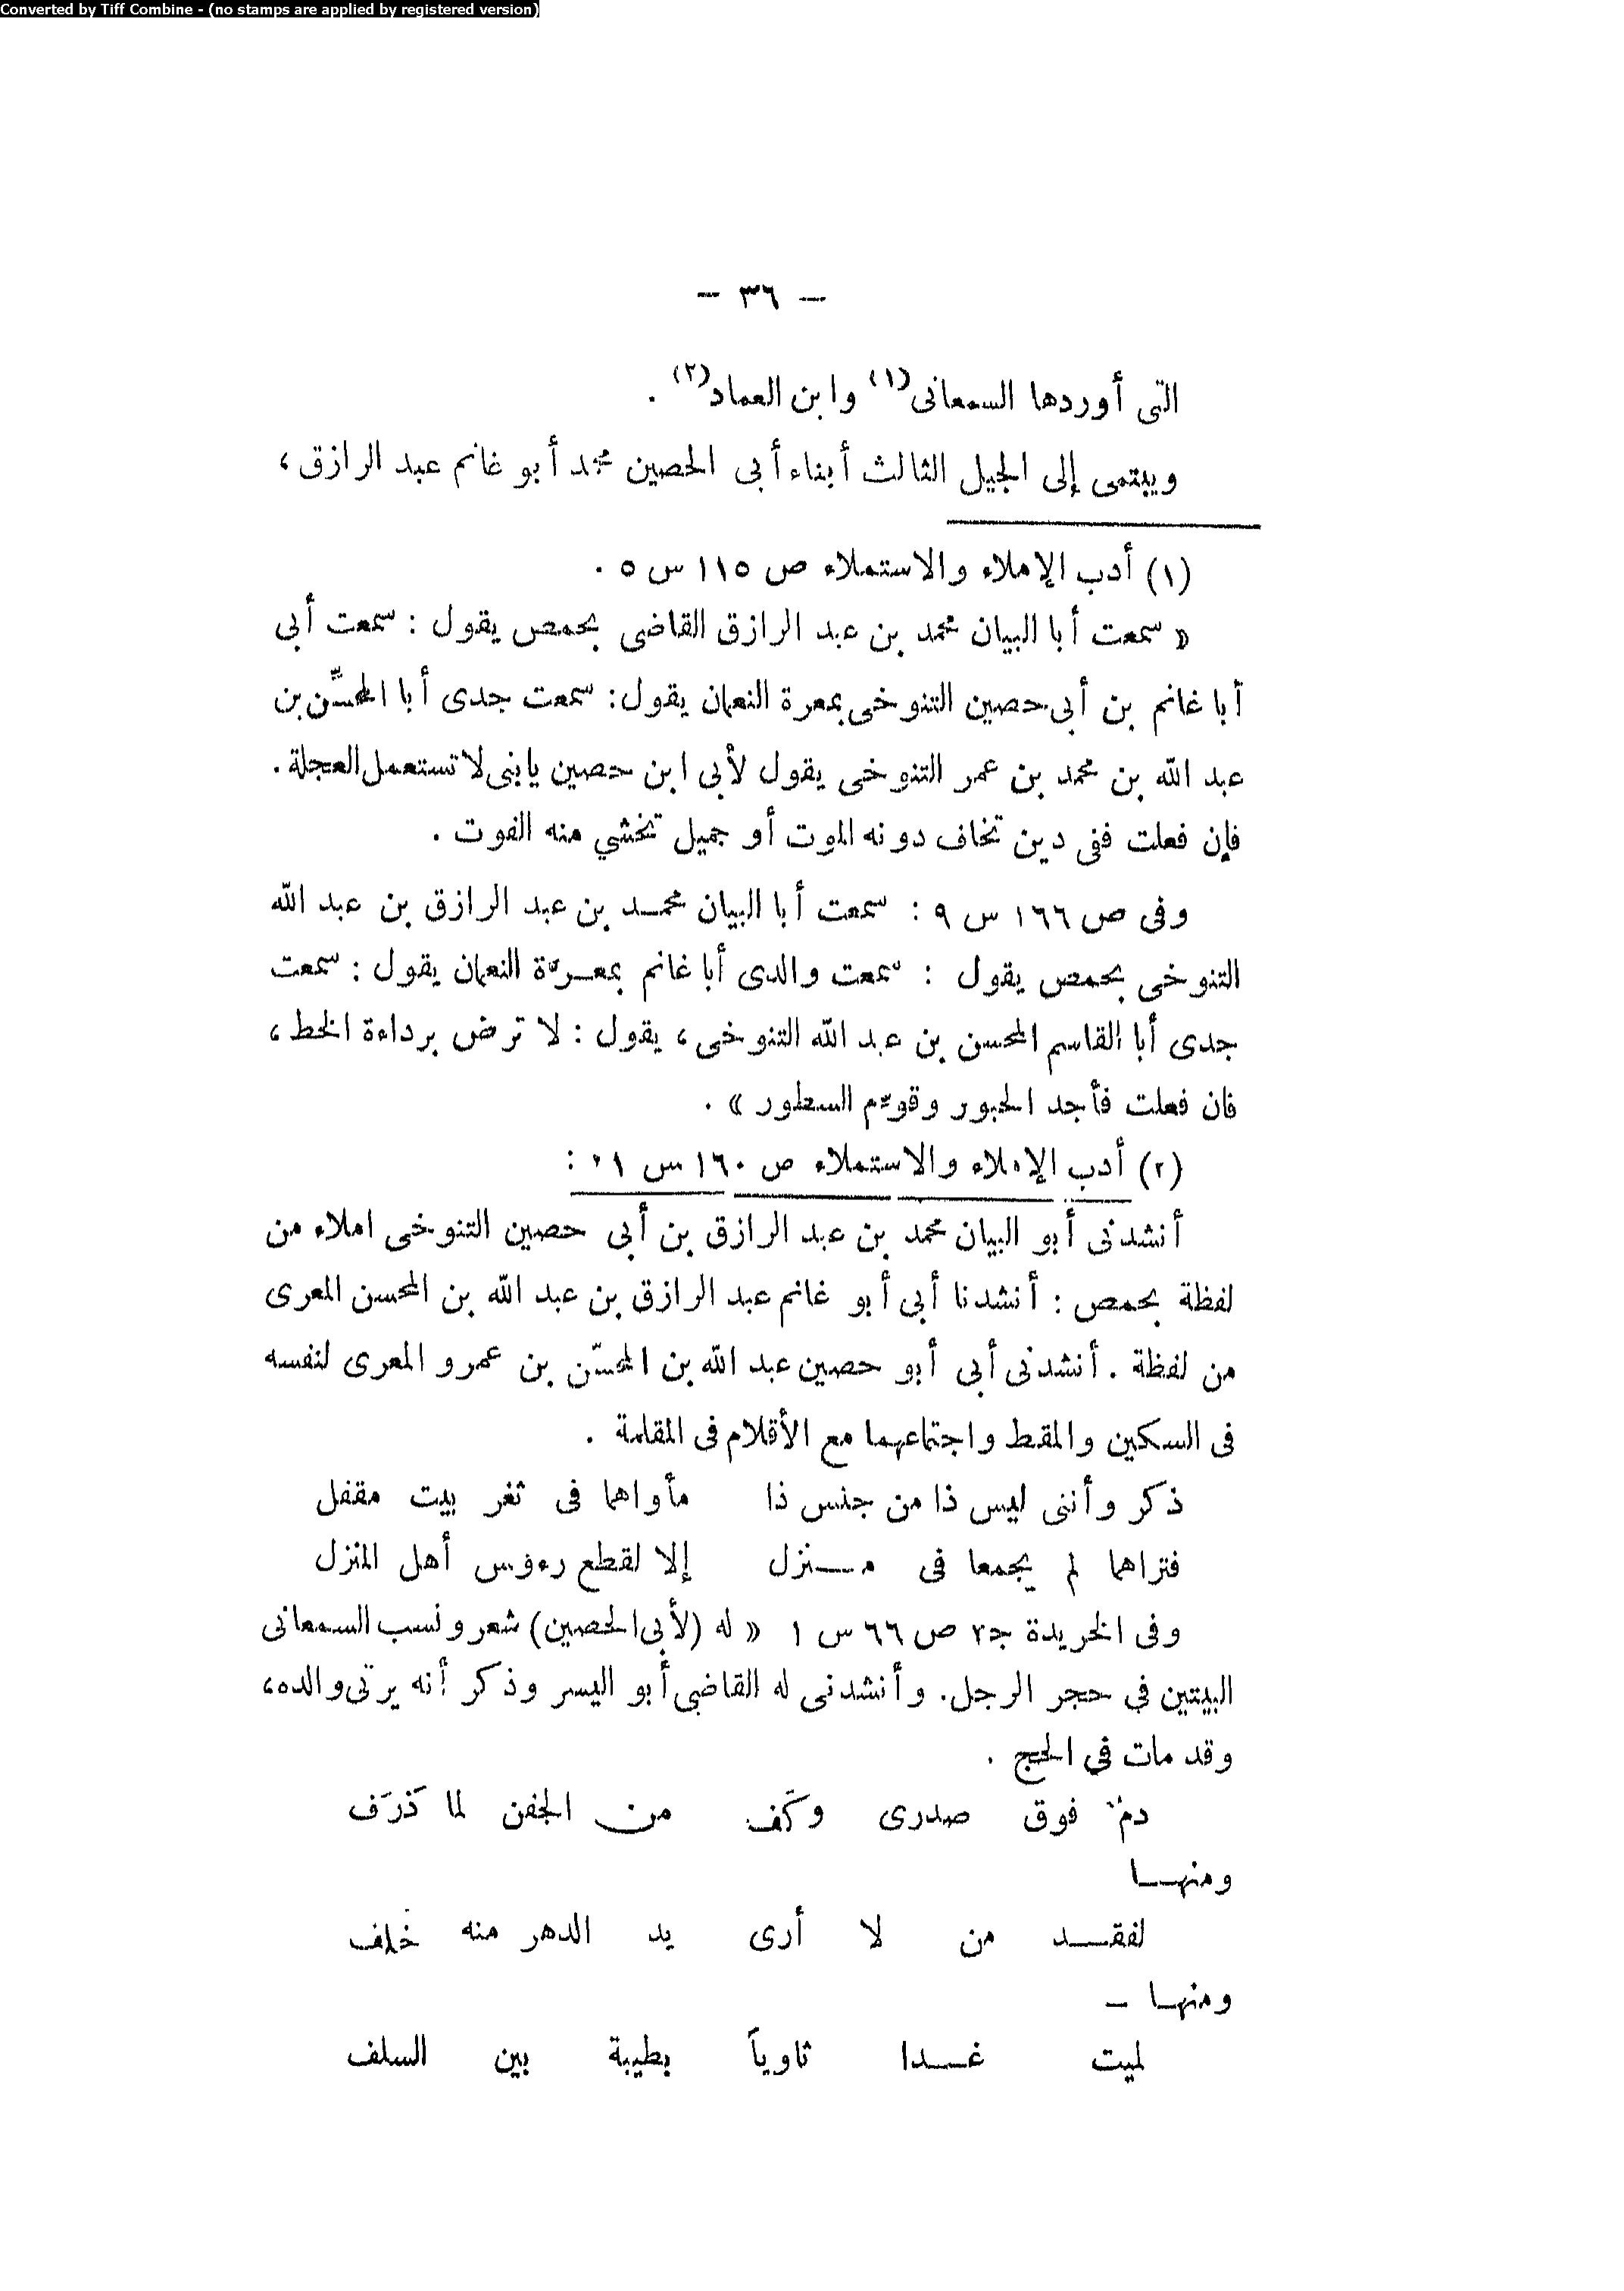 Converted by Tiff Combine - (no stamps are applied by registered version)
— ٣٦ —
التى أوردها السمعانى(١) وابن العماد(٢) .
ويبتمى إلى الجيل الثالث أبناء أبى الحصين محمد أبو غانم عبد الرازق ،
(١) أدب الإملاء والاستملاء ص ١١٥ س ٥ .
« سمعت أبا البيان محمد بن عبد الرازق القاضى بحمص يقول : سمعت أبى
أبا غانم بن أبى حصين التنوخى بمعرة النعمان يقول : سمعت جدى أبا المحسِّن بن
عبد الله بن محمد بن عمر التنوخى يقول لأبى ابن حصين يابنى لا تستعمل العجلة .
فإن فعلت ففى دين تخاف دونه الموت أو جميل تخشي منه الفوت .
وفى ص ١٦٦ س ٩ : سمعت أبا البيان محمد بن عبد الرازق بن عبد الله
التنوخى بحمص يقول : سمعت والدى أبا غانم بمعرّة النعمان يقول : سمعت
جدى أبا القاسم المحسن بن عبد الله التنوخى ، يقول : لا ترض برداءة الخط ،
فان فعلت فأجد الحبور وقوّم السطور » .
(٢) أدب الإملاء والاستملاء ص ١٦٠ س :
أنشدنى أبو البيان محمد بن عبد الرازق بن أبى حصين التنوخى املاء من
لفظة بحمص : أنشدنا أبى أبو غانم عبد الرازق بن عبد الله بن المحسن المعرى
من لفظة . أنشدنى أبى أبو حصين عبد الله بن المحسّن بن عمرو المعرى لنفسه
فى السكين والمقط واجتماعهما مع الأقلام فى المقلمة .
ذكر وأنثى ليس ذا من جنس ذا مأواهما فى ثغر بيت مقفل
فتراهما لم يجمعا فى منزل إلا لقطع رءوس أهل المنزل
وفى الخريدة ج٢ ص ٦٦ س ١ « له (لأبى الحصين) شعر ونسب السمعانى
البيتين في حجر الرجل. وأنشدنى له القاضي أبو اليسر وذكر أنه يرثى والده،
وقد مات في الحج .
دمٌ فوق صدرى وكَف من الجفن لما ذرَف
ومنها
لفقد من لا أرى يد الدهر منه خلف
ومنها —
لميت غدا ثاوياً بطيبة بين السلف